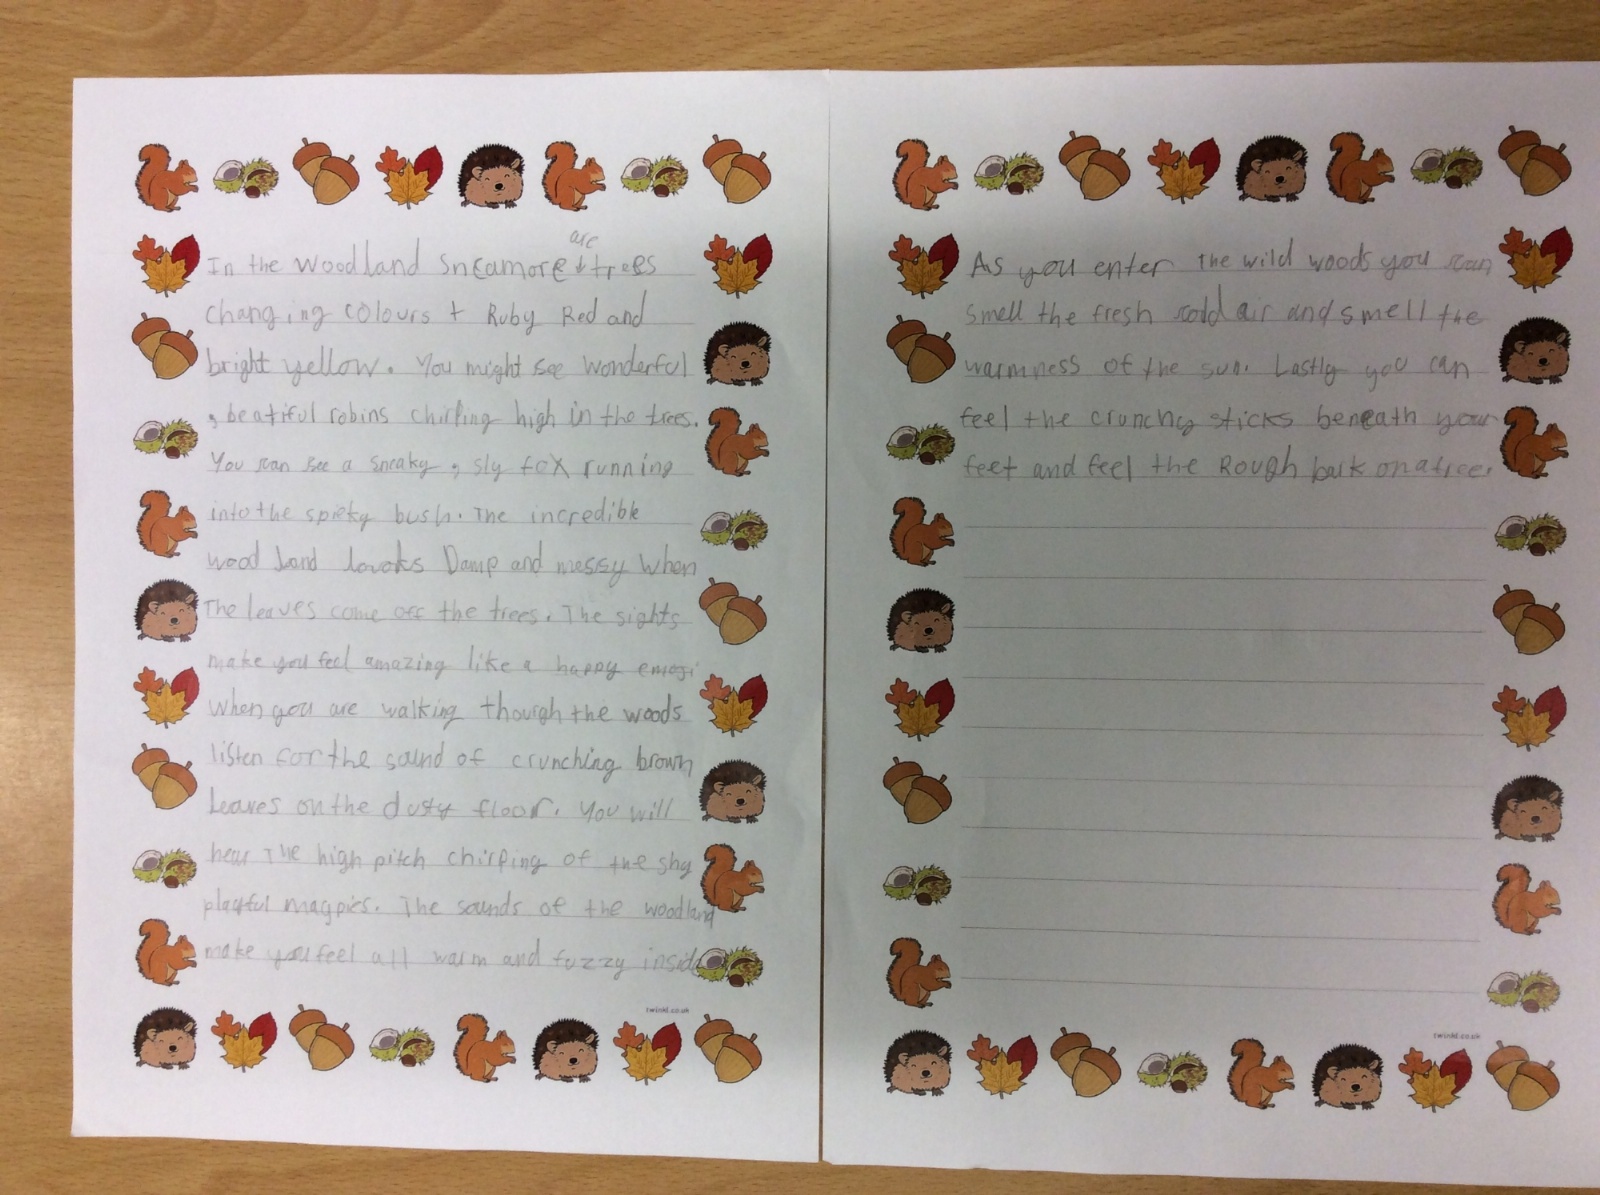 are
In the Woodland Sncamore ↓ trees
changing colours + Ruby Red and
bright yellow. You might see wonderful
, beatiful robins chirping high in the trees.
You can see a sneaky , sly fox running
into the spicky bush. The incredible
wood land looks Damp and messy when
The leaves come off the trees. The sights
make you feel amazing like a happy emoji
When you are walking though the woods
listen for the sound of crunching brown
Leaves on the dusty floor. You will
hear The high pitch chirping of the shy
playful magpies. The sounds of the woodland
make you feel all warm and fuzzy inside
twinkl.co.uk
As you enter The wild woods you can
smell the fresh cold air and smell the
warmness of the sun. Lastly you can
feel the crunchy sticks beneath your
feet and feel the Rough bark on a tree.
twinkl.co.uk